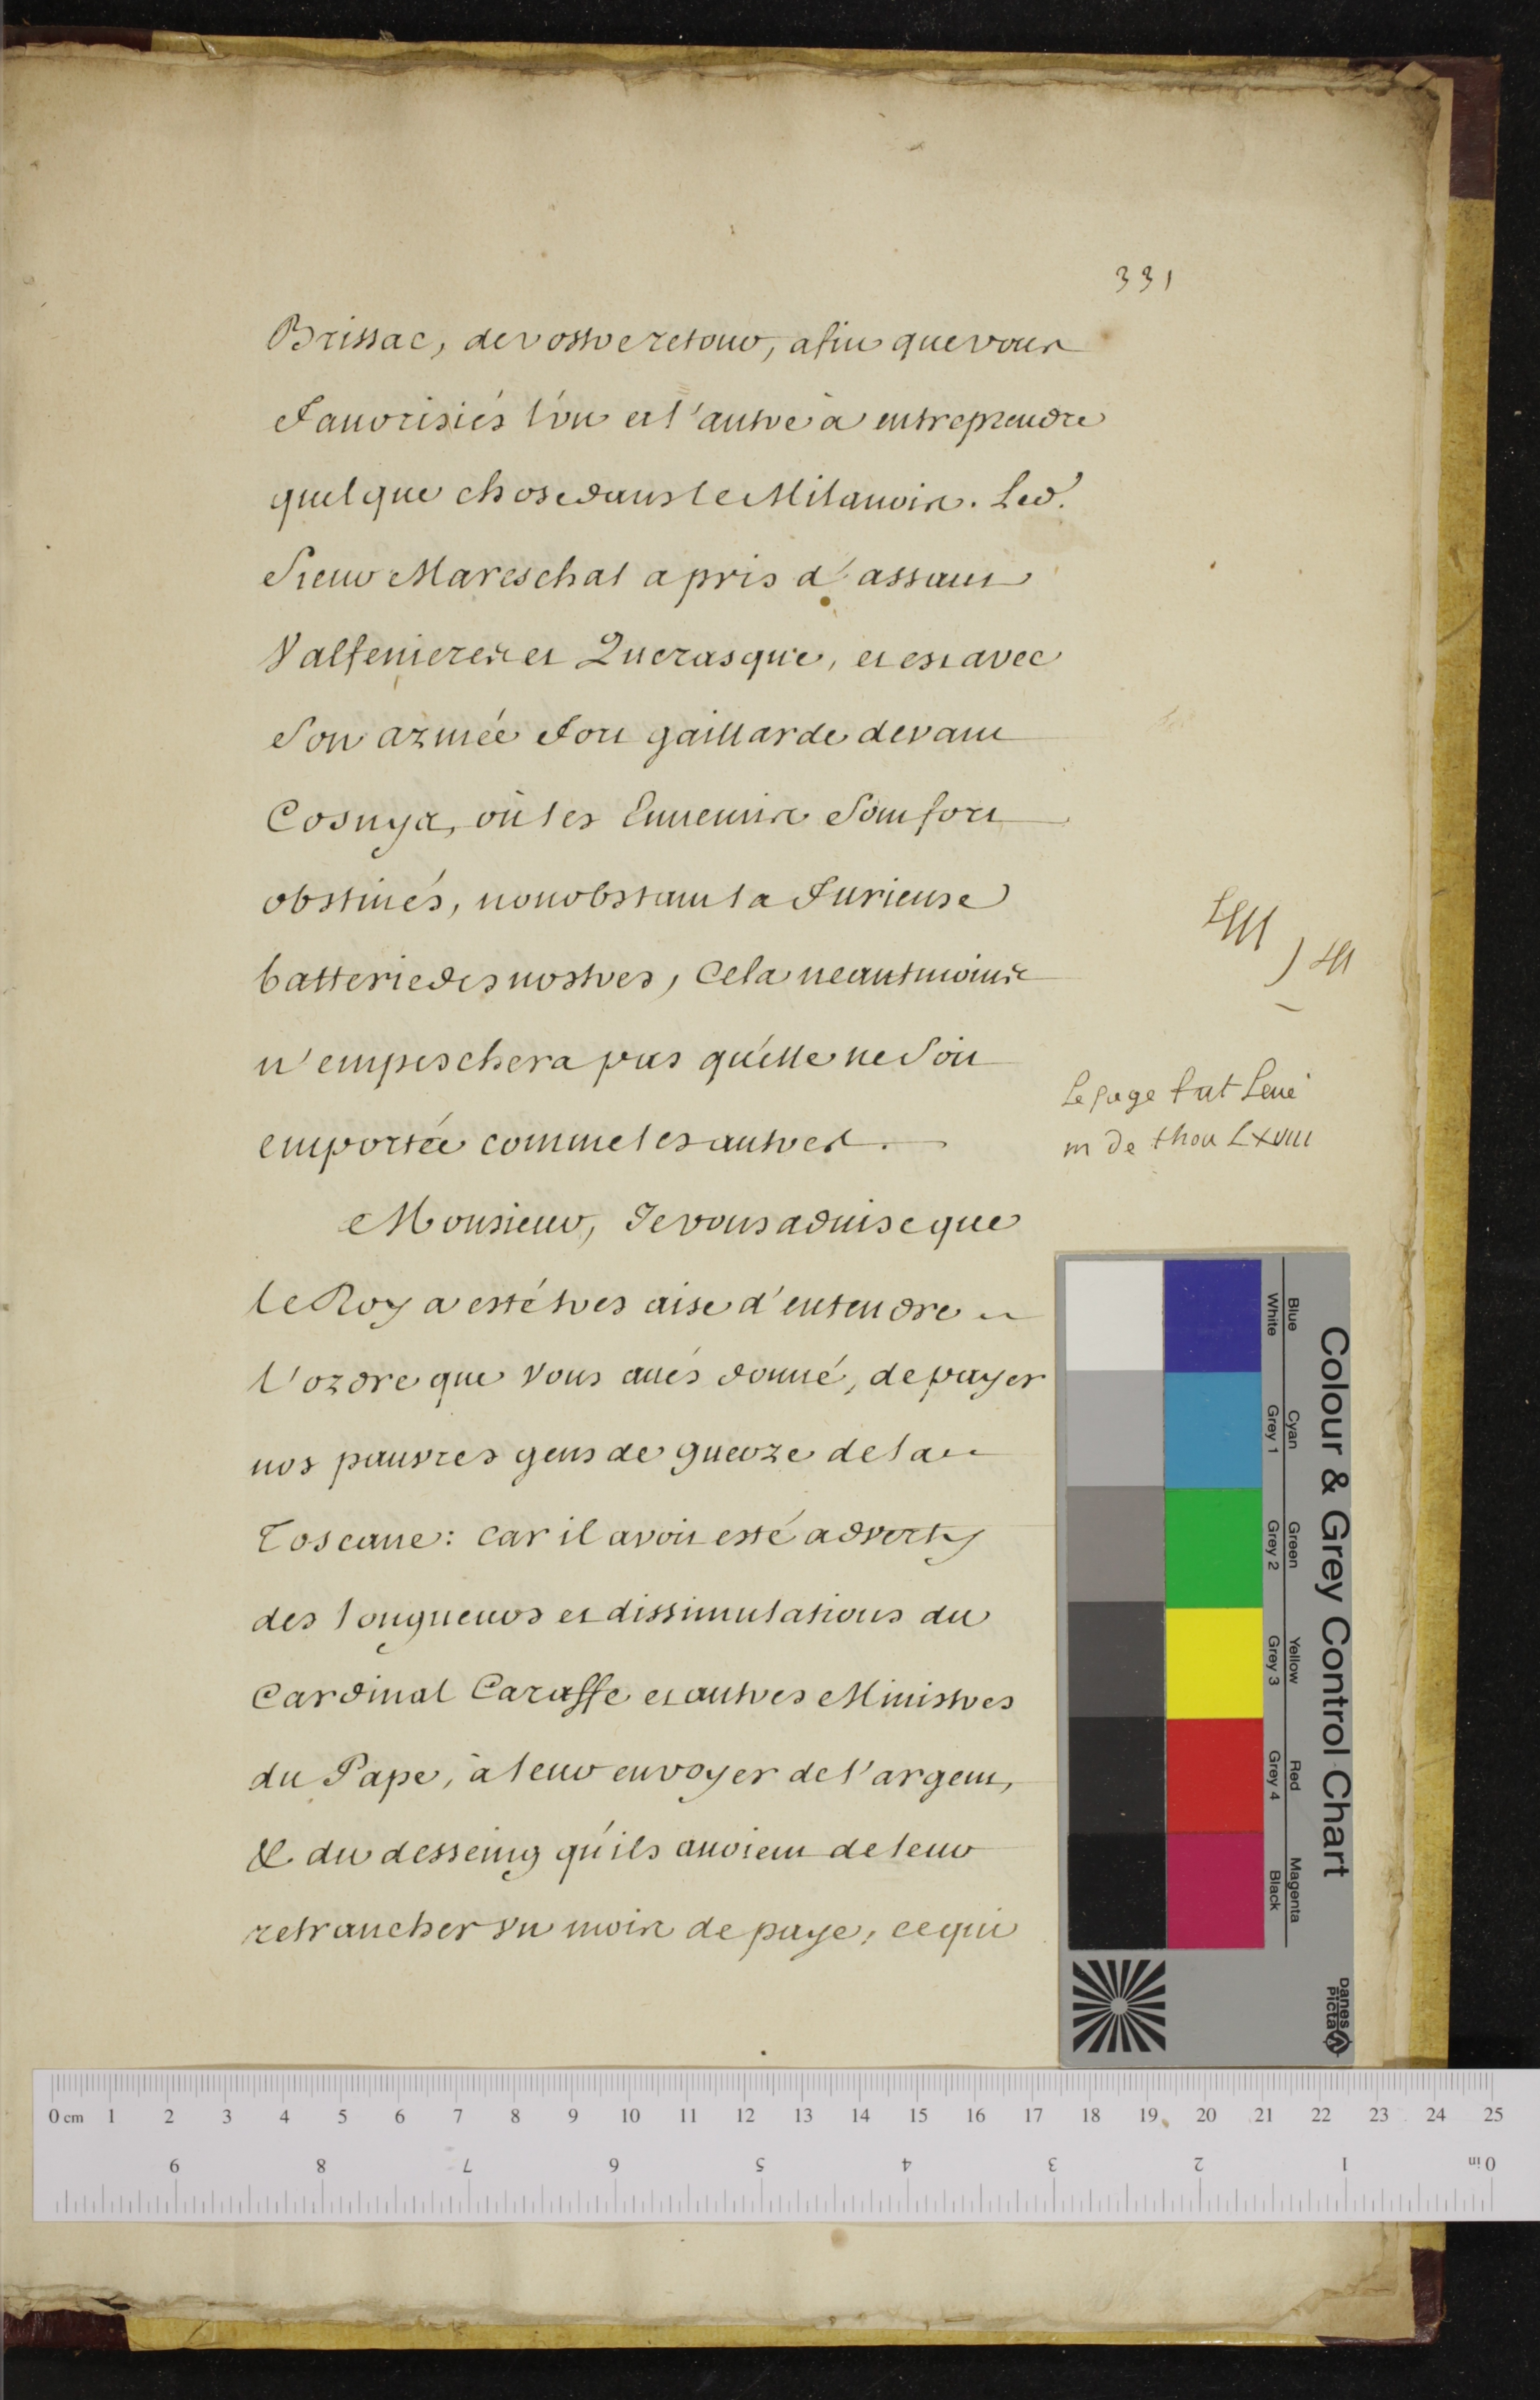 331
Brissac, de vostre retour, afin que vous
favorisiés l'vn et l'autre à entreprendre
quelque chose dans le Milanois. Led.
Sieur Mareschal a pris d'assaut
Valfenieres et Querasque, et est avec
son armée fort gaillarde devant
Cosnya, où les Ennemis sont fort
obstinés, nonobstant la furieuse
batterie des nostres, Cela neantmoins
n'empeschera pas qu'elle ne soit
emportée comme les autres.
Le siege fut levé
m de thou LXVIII
Monsieur, Je vous aduise que
le Roy a esté tres aise d'entendre
l'ordre que vous aués donné, de payer
nos pauvres gens de guerre de la
Toscane: car il avoit esté adverty
des longueurs et dissimulations du
Cardinal Caraffe et autres Ministres
du Pape, à leur envoyer de l'argent,
& du desseing qu'ils auoient de leur
retrancher vn mois de paye, ce qui
Colour & Grey Control Chart
Blue Cyan Green Yellow Red Magenta
White Grey 1 Grey 2 Grey 3 Grey 4 Black
Danes Picta
0 cm 1 2 3 4 5 6 7 8 9 10 11 12 13 14 15 16 17 18 19 20 21 22 23 24 25
9 8 7 6 5 4 3 2 1 0 in